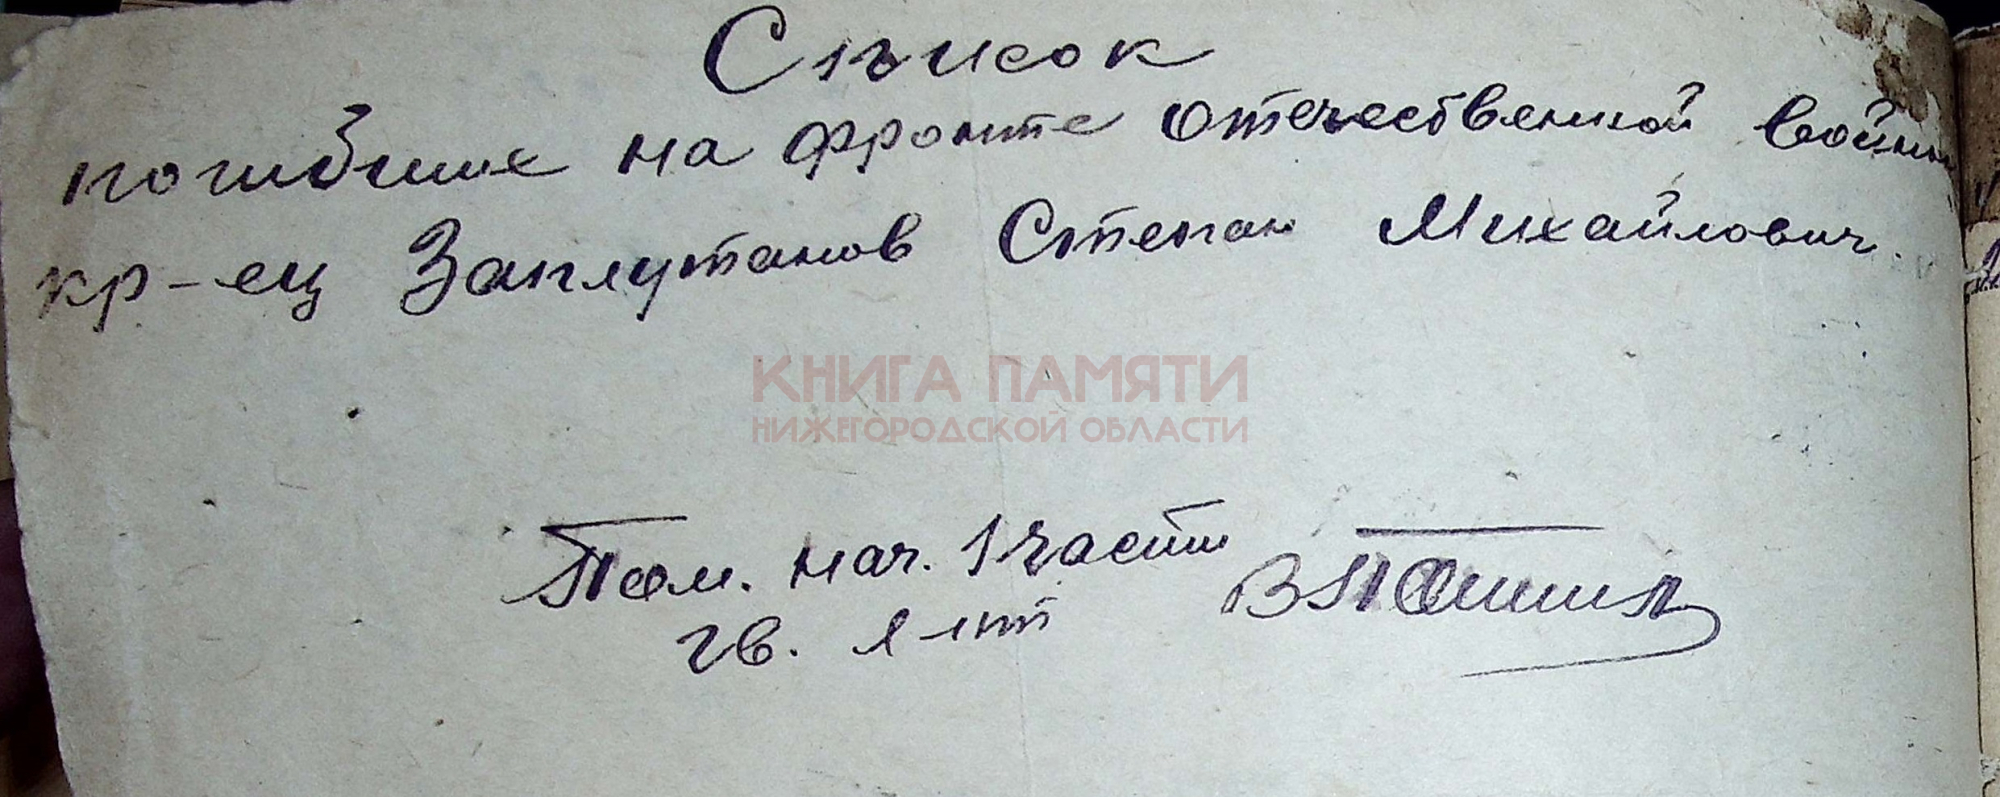 Список
погибших на фронте отечественной войны
кр-ец Заплутанов Степан Михайлович.
КНИГА ПАМЯТИ
НИЖЕГОРОДСКОЙ ОБЛАСТИ
Пом. нач. 1 части
гв. л-нт